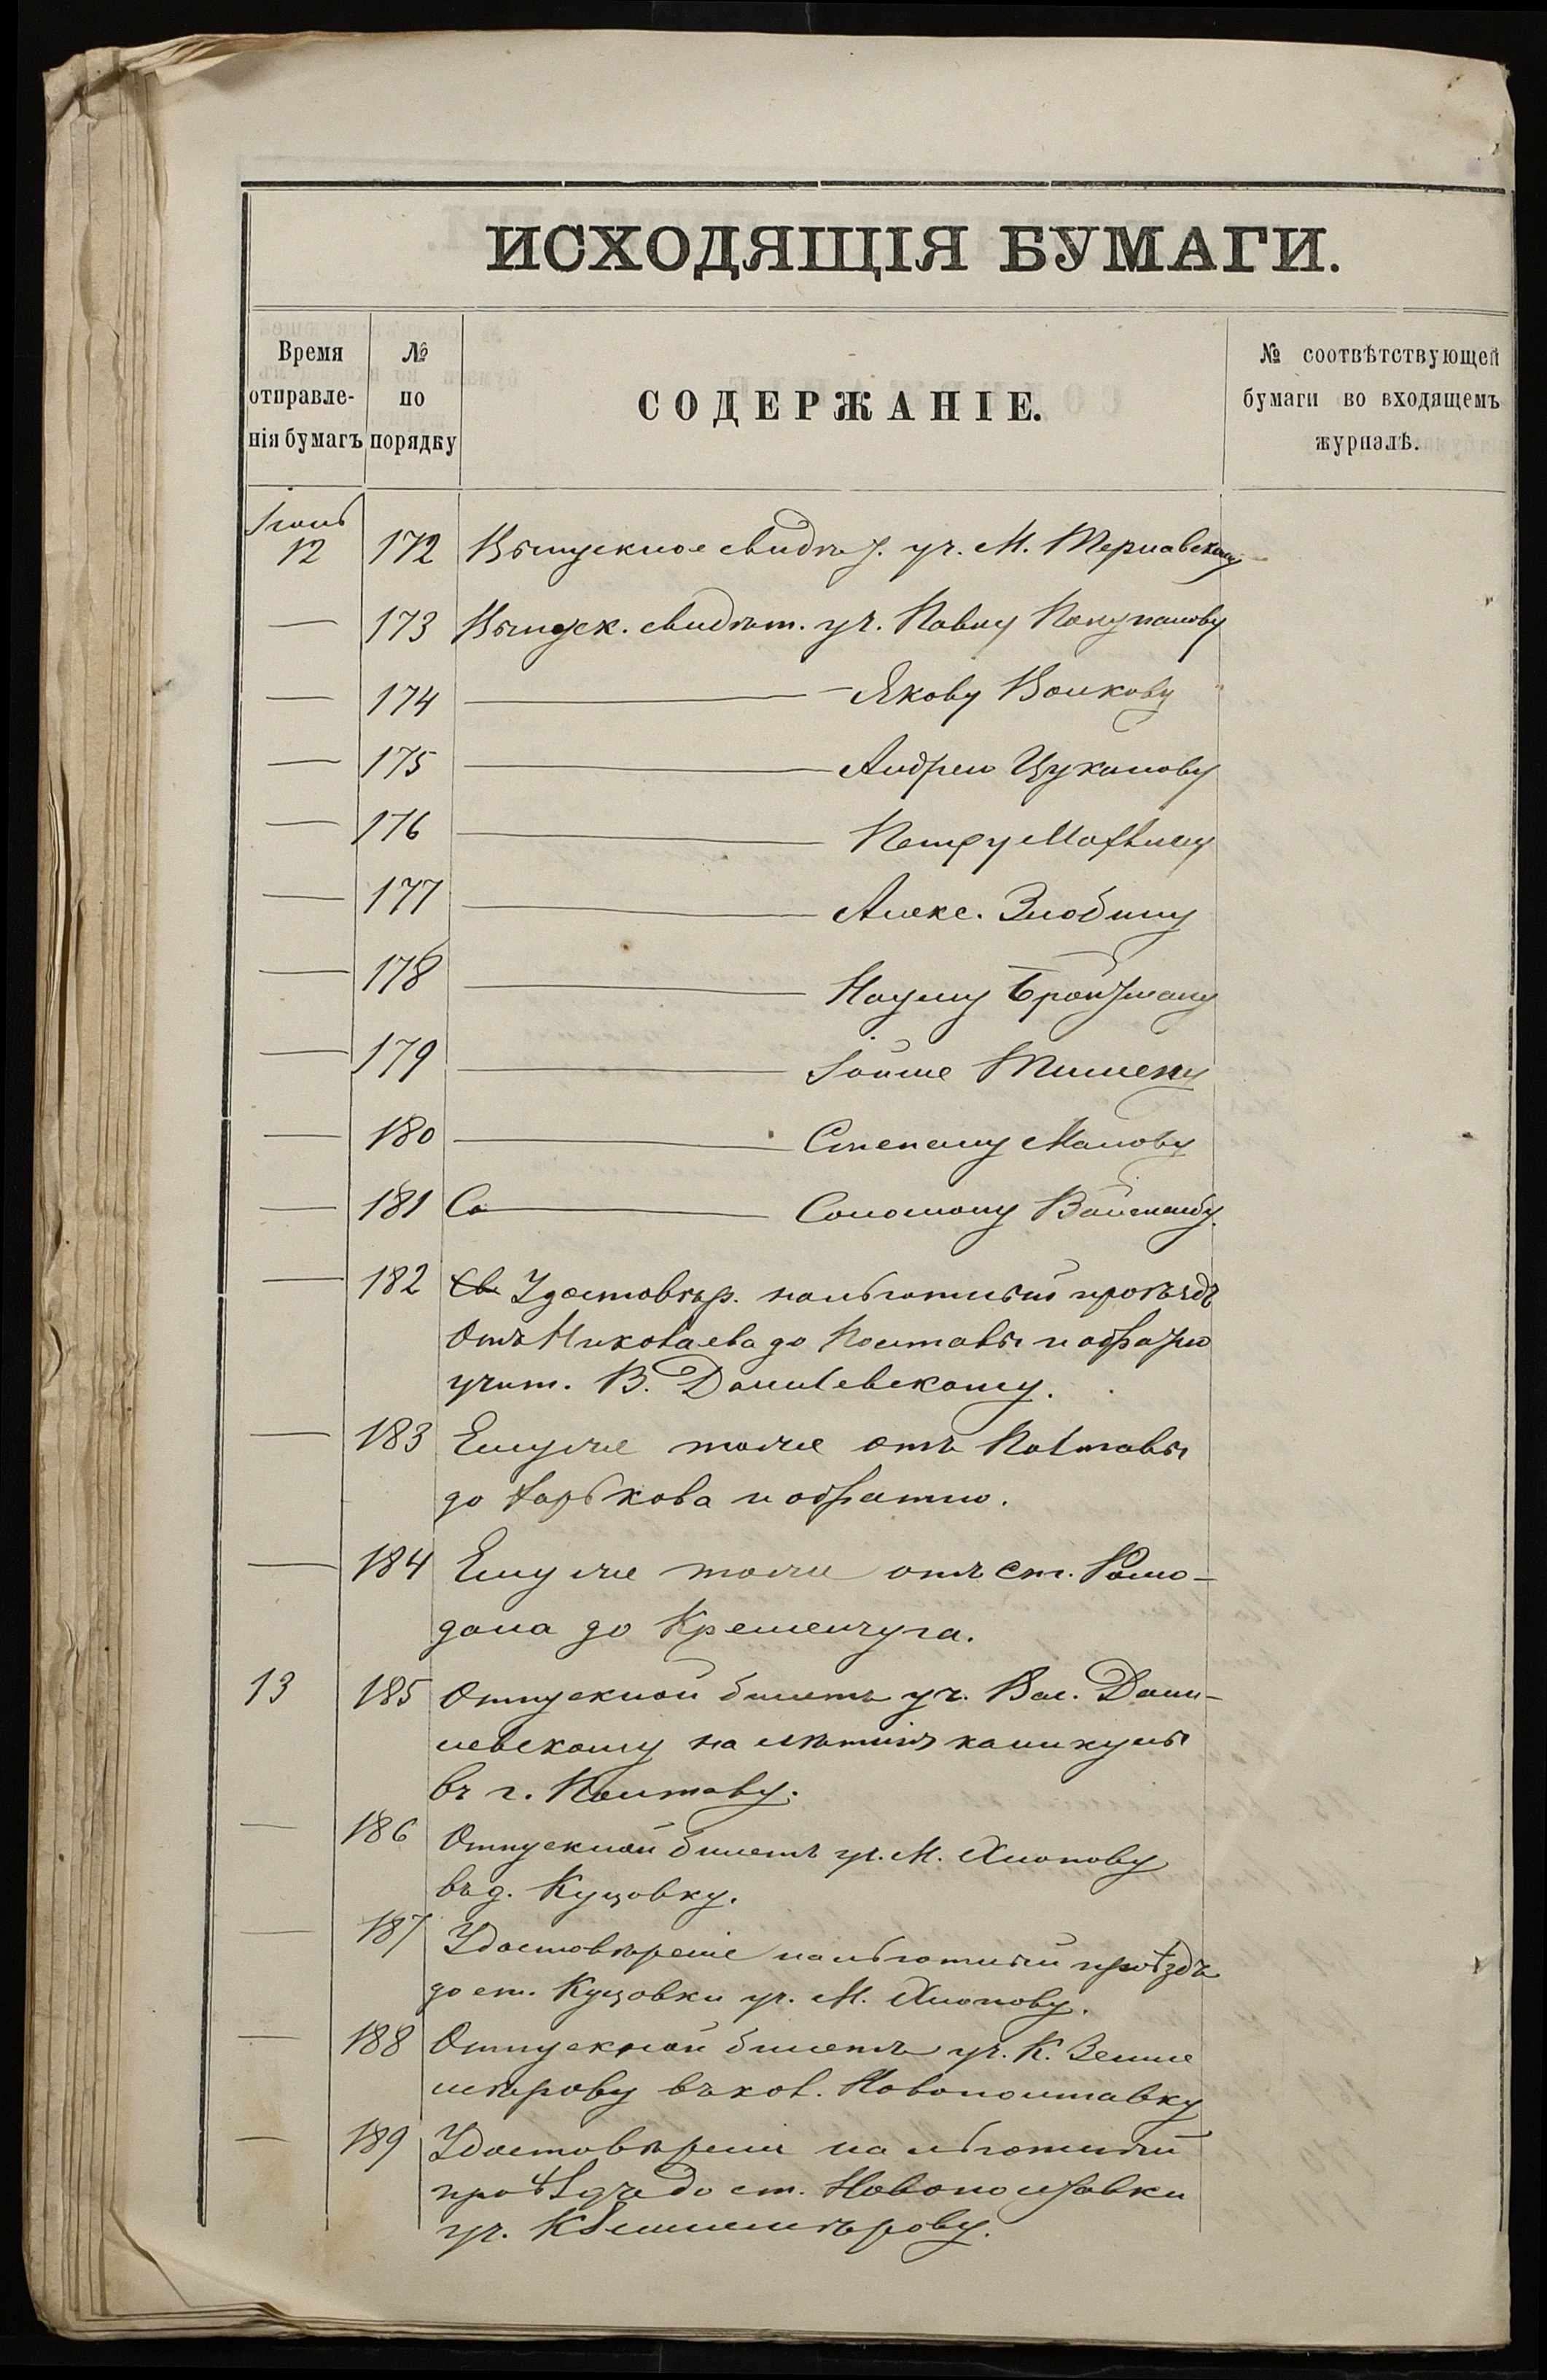 ИСХОДЯЩІЯ БУМАГИ.
Время отправле-нія бумагъ
№ по порядку
СОДЕРЖАНІЕ.
№ соотвѣтствующей бумаги во входящемъ журналѣ.
Іюнь
12 172 Выпускное свидѣт. уч. М. Тернавскому
— 173 Выпуск. свидѣт. уч. Павлу Покупанову
— 174 — Якову Волкову
— 175 — Андрею Цуканову
— 176 — Петру
— 177 — Алекс. Злобину
— 178 — Науму Бройтману
— 179 — Іойше
— 180 — Степану Малову
— 181 Со — Соломону
— 182 Св Удостовѣр. на льготный проѣздъ
отъ Николаева до Полтавы и обратно
учит. В. Данилевскому.
— 183 Ему же тоже отъ Полтавы
до Харькова и обратно.
— 184 Ему же тоже отъ ст. Ромо-
дана до Кременчуга.
13 185 Отпускной билетъ уч. Вас. Дани-
левскому на лѣтнія каникулы
въ г. Полтаву.
— 186 Отпускной билетъ уч. М. Хлопову
въ д. Куцовку.
— 187 Удостовѣреніе на льготный проѣздъ
до ст. Куцовки уч. М. Хлопову.
— 188 Отпускной билетъ уч. К.
въ кол. Новополтавку
— 189 Удостовѣреніе на льготный
проѣздъ до ст. Новополтавки
уч. К